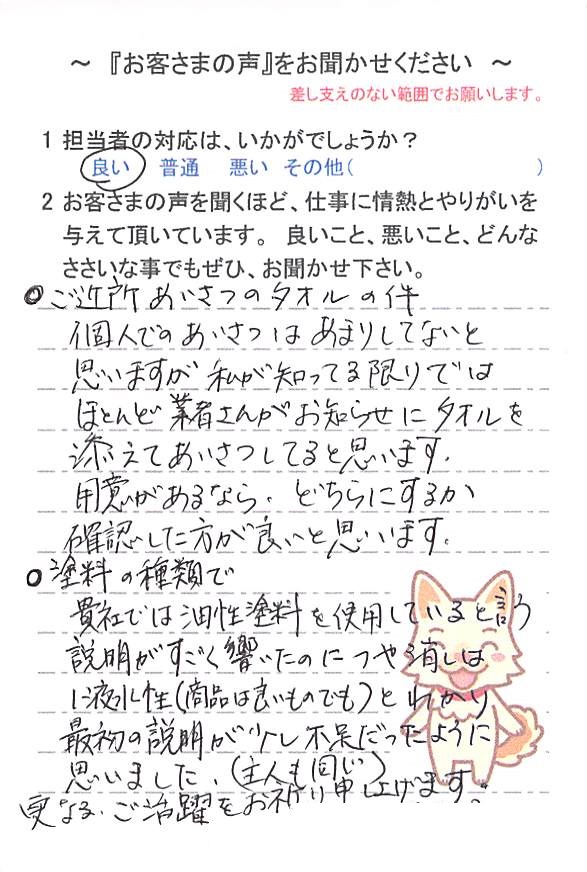 ～ 『お客さまの声』をお聞かせください ～
差し支えのない範囲でお願いします。
1 担当者の対応は、いかがでしょうか？
良い 普通 悪い その他( )
2 お客さまの声を聞くほど、仕事に情熱とやりがいを
与えて頂いています。 良いこと、悪いこと、どんな
ささいな事でもぜひ、お聞かせ下さい。
○ご近所あいさつのタオルの件
個人でのあいさつはあまりしてないと
思いますが私が知ってる限りでは
ほとんど業者さんがお知らせにタオルを
添えてあいさつしてると思います.
用意があるなら、どちらにするか
確認した方が良いと思います。
○塗料の種類で
貴社では油性塗料を使用していると言う
説明がすごく響いたのにつや消しは
1液水性(商品は良いものでも)とわかり
最初の説明が少し不足だったように
思いました.(主人も同じ)
更なる、ご活躍をお祈り申し上げます。